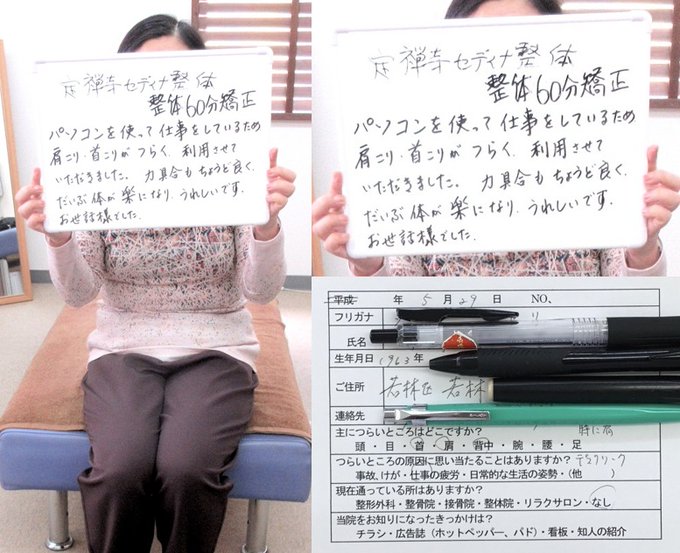 定禅寺セディナ整体
整体60分矯正
パソコンを使って仕事をしているため
肩こり・首こりが つらく、利用させて
いただきました。 力具合もちょうど良く、
だいぶ 体が 楽になり、うれしいです。
お世話様でした。
定禅寺セディナ整体
整体60分矯正
パソコンを使って仕事をしているため
肩こり・首こりが つらく、利用させて
いただきました。 力具合もちょうど良く、
だいぶ 体が 楽になり、うれしいです。
お世話様でした。
平成 年 5 月 29 日 NO、
フリガナ
氏名
生年月日 1963年
ご住所 若林区 若林
連絡先
主につらいところはどこですか? 特に肩
頭・目・首・肩・背中・腕・腰・足
つらいところの原因に思い当たることはありますか? デスクワーク
事故、けが・仕事の疲労・日常的な生活の姿勢・(他 )
現在通っている所はありますか?
整形外科・整骨院・接骨院・整体院・リラクサロン・なし
当院をお知りになったきっかけは?
チラシ・広告誌(ホットペッパー、パド)・看板・知人の紹介